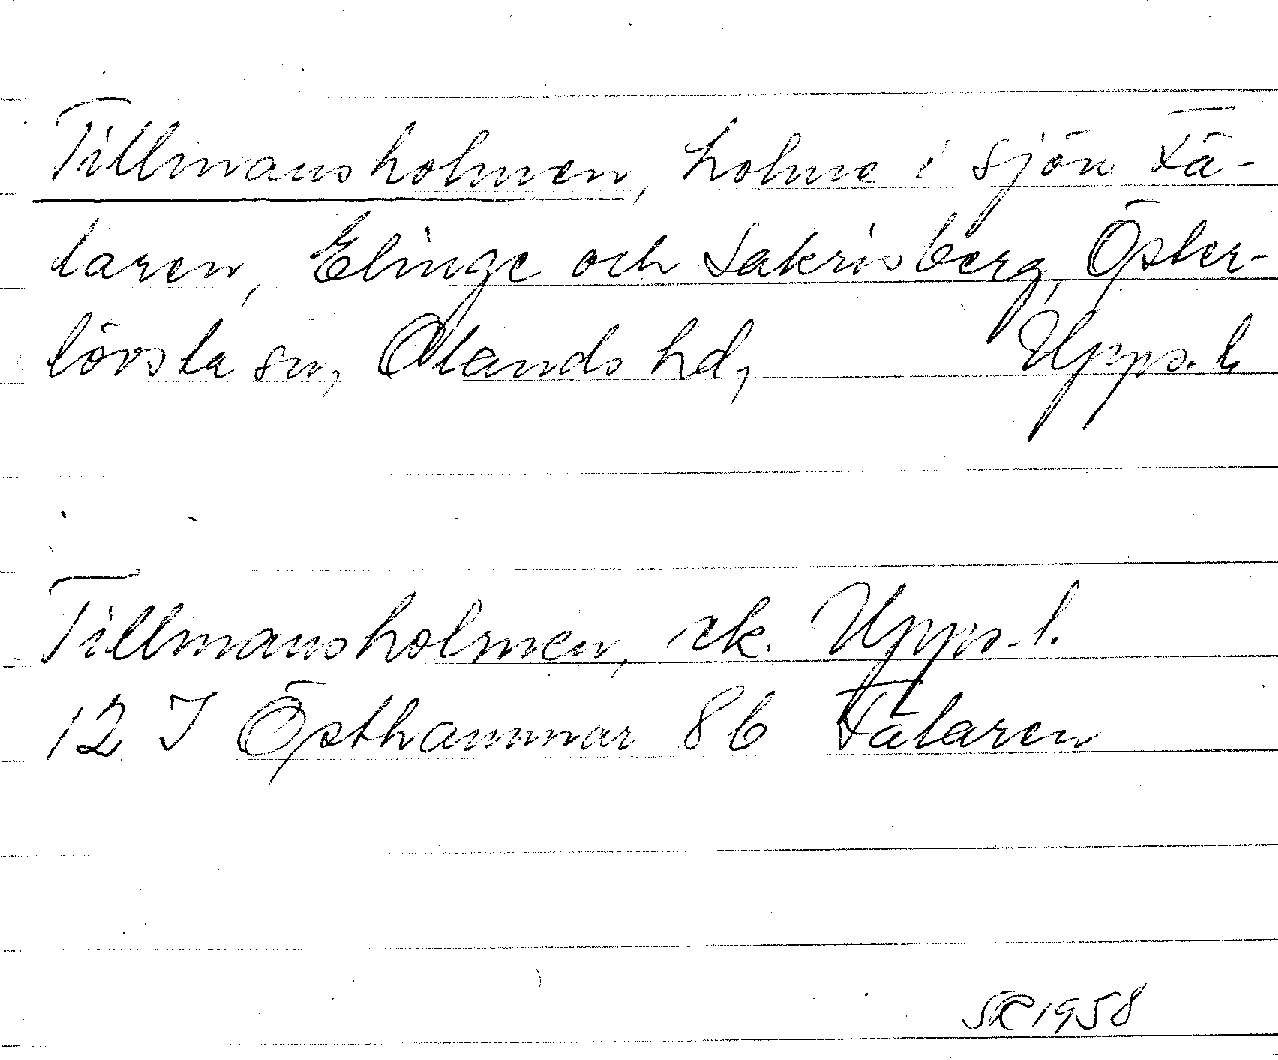 Tillmansholmen, holme i sjön Fä-
laren, Elinge och Sakrisberg, Öster-
lövsta sn, Olands hd, Upps. l.
Tillmansholmen, ek. Upps. l.
12 I Östhammar 86 Fälaren
1958